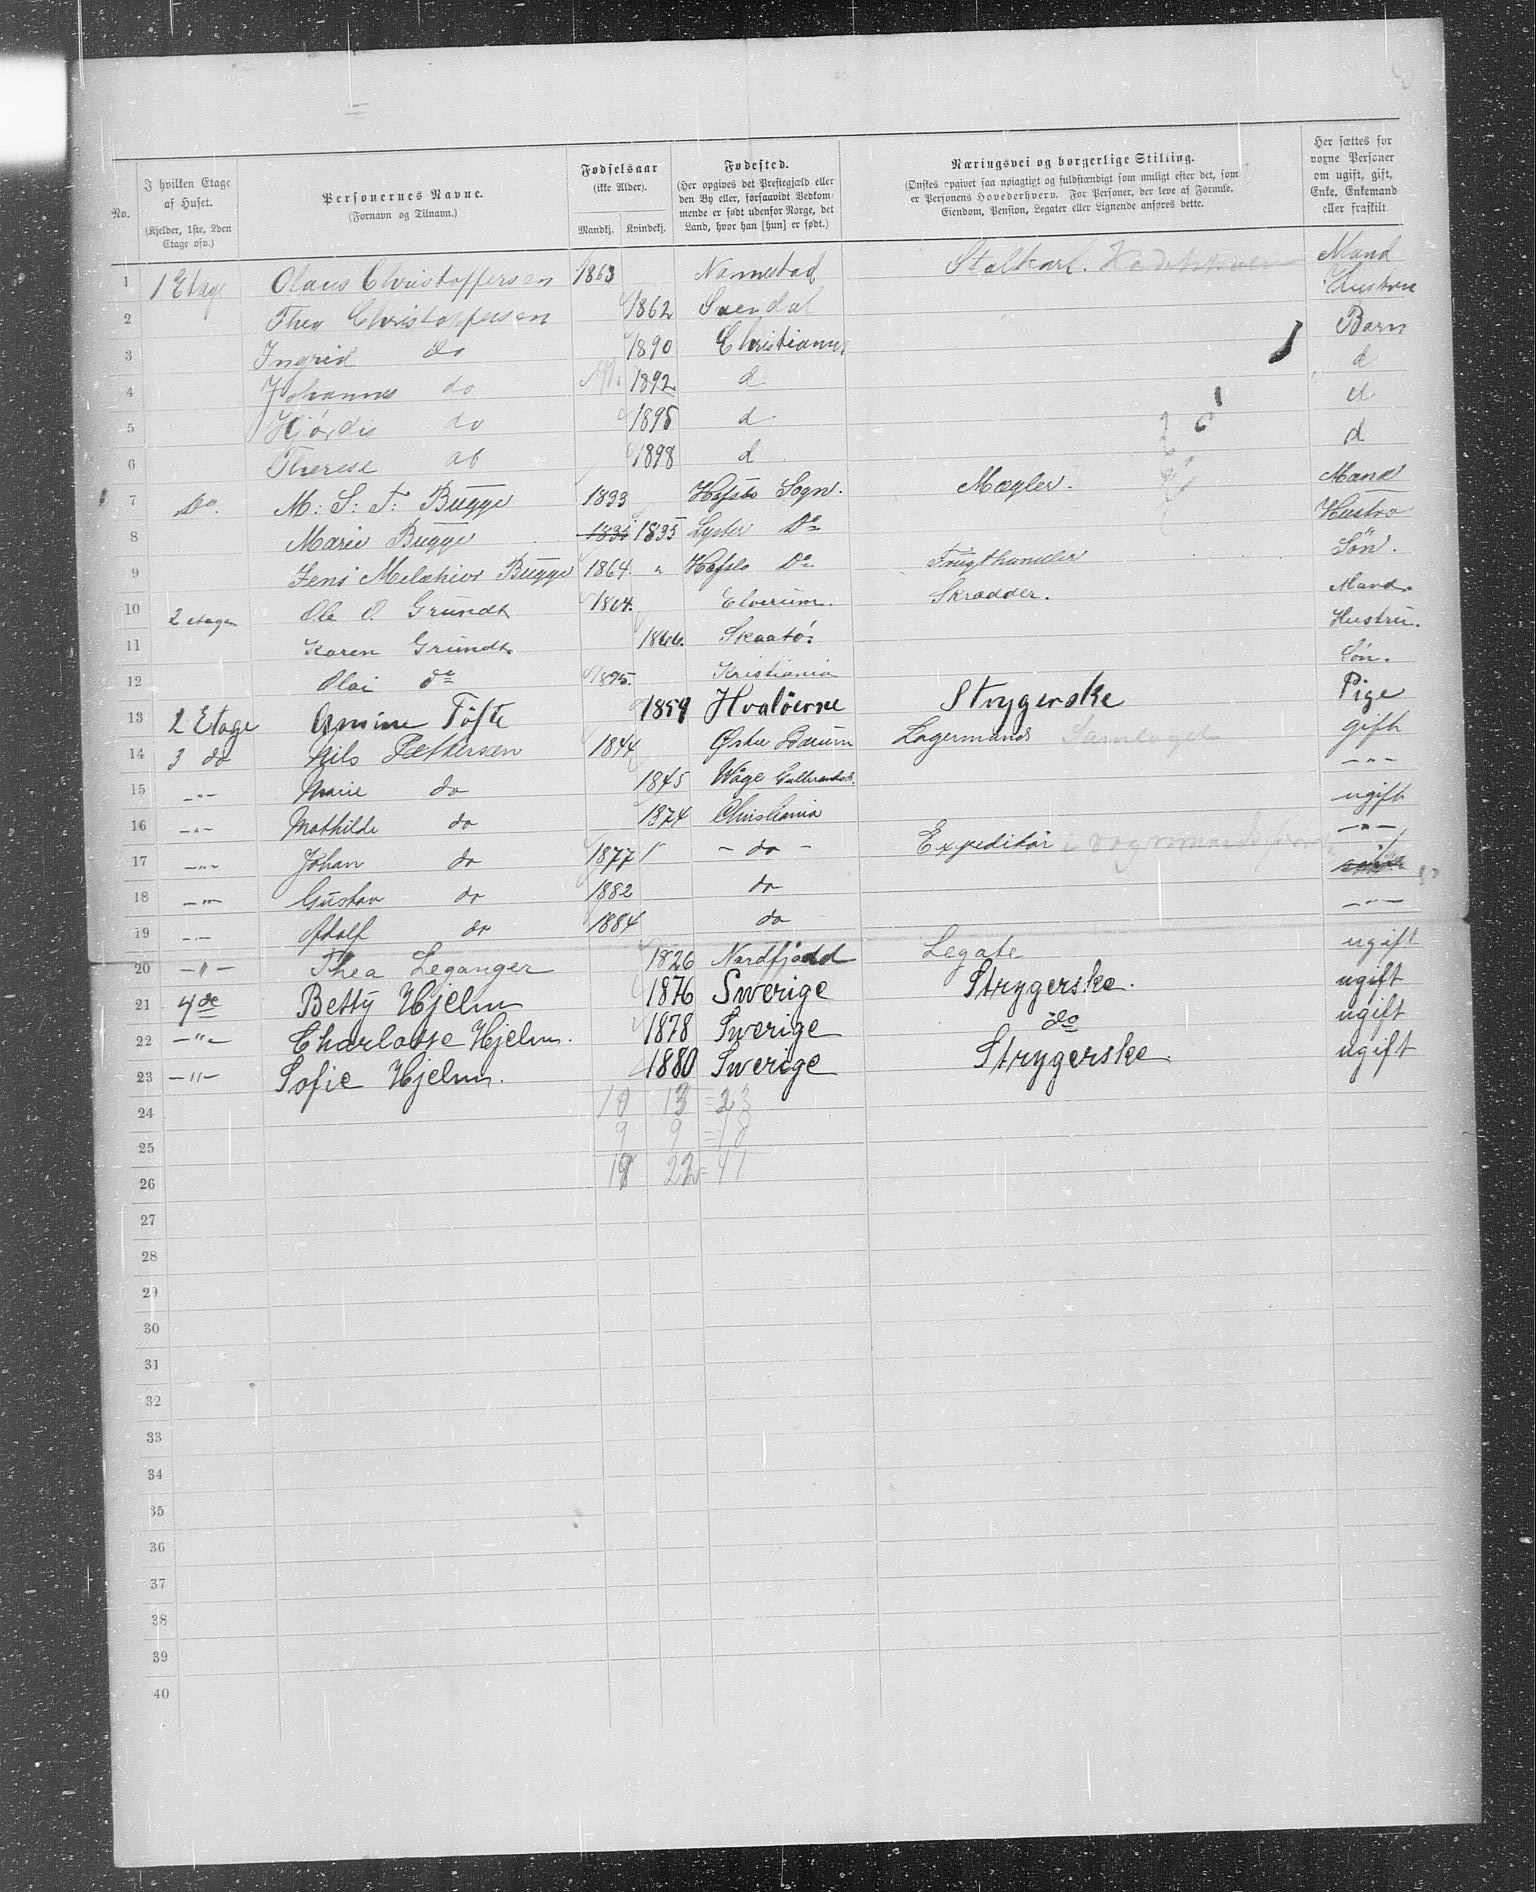 No.
I hvilken Etage af Huset. (Kjelder, 1ste, 2den Etage osv.)
Personernes Navne. (Fornavn og Tilnavn.)
Fødselsaar (ikke Alder). Mandkj. Kvindekj.
Fødested. (Her opgives det Prestegjæld eller den By eller, forsaavidt Vedkommende er født udenfor Norge, det Land, hvor han [hun] er født.)
Næringsvei og borgerlige Stilling. (Ønskes opgivet saa nøiagtigt og fuldstændigt som muligt efter det, som er Personens Hovederhverv. For Personer, der leve af Formue, Eiendom, Pension, Legater eller Lignende anføres dette.)
Her sættes for voxne Personer om ugift, gift, Enke, Enkemand eller fraskilt.
1 1 Etage Olaus Christoffersen 1863 Namestad Stalkarl. Mand
2 Thea Christoffersen 1862 Soendal Hustru
3 Ingrid do 1890 Christiania Barn
4 Johannes do 1892 d d
5 Hjørdis do 1895 d d
6 Therese do 1898 d d
7 Do. M: S: T: Bugge 1833 Hafslo Sogn. Mægler. Mand
8 Marie Bugge 1835 1835 Lyster Do Hustro
9 Jens Melchior Bugge 1864 " Hafslo Do Frugthandler Søn.
10 2 etage Ole O. Grundt 1864. Elverum. Skradder. Mand.
11 Karen Grundt. 1866. Skaatø. Hustru.
12 Olai do 1895. Kristiania Søn.
13 2 Etage Amine Töfte 1859 Hvaløerne Strygerske Pige
14 3 do Nils Pettersen 1844 Østre Bærum Lagermand Samlaget gift
15 -"- Marie do 1845 Waage Gulbrandsd. -"-
16 -"- Mathilde do 1874 Christiania ugift
17 -"- Johan do 1877 - do - Expeditør -"-
18 -"- Gustav do 1882 do
19 -"- Adolf do 1884 do -"-
20 -"- Thea Leganger 1826 Nordfjord Legate ugift
21 4 de Betty Hjelm 1876 Swerige Strygerske. ugift
22 -"- Charlotte Hjelm. 1878 Swerige do ugift
23 -"- Sofie Hjelm. 1880 Swerige Strygerske. ugift
24 10 13 = 23
25 9 9 = 18
26 19 22 = 41
27
28
29
30
31
32
33
34
35
36
37
38
39
40